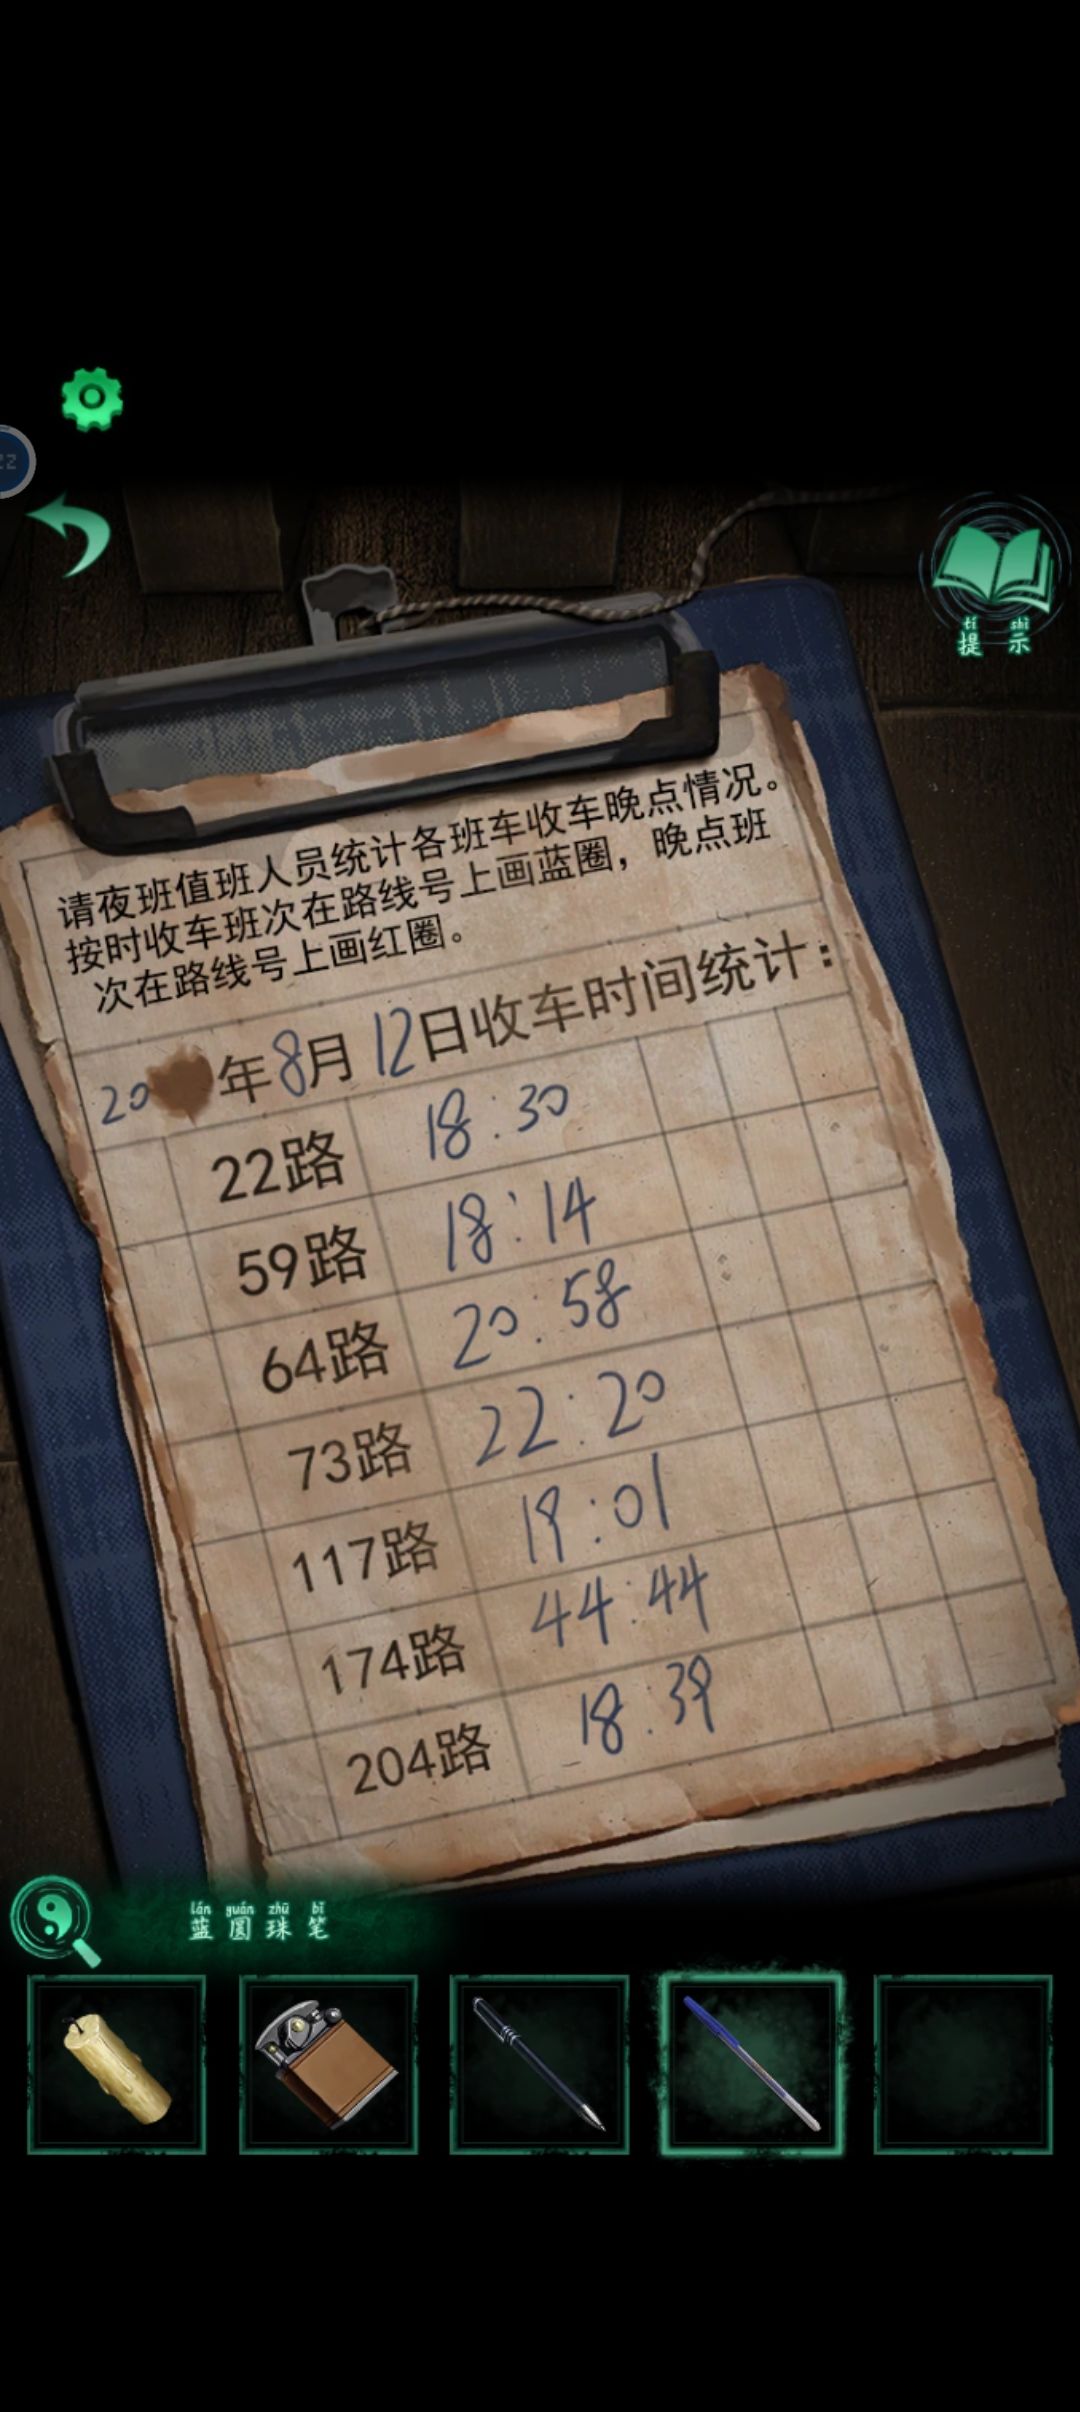 tí shì
提示
请夜班值班人员统计各班车收车晚点情况。
按时收车班次在路线号上画蓝圈，晚点班
次在路线号上画红圈。
20 年8月12日收车时间统计：
22路 18:30
59路 18:14
64路 20:58
73路 22:20
117路 19:01
174路 44:44
204路 18:39
lán guán zhū bǐ
蓝圆珠笔